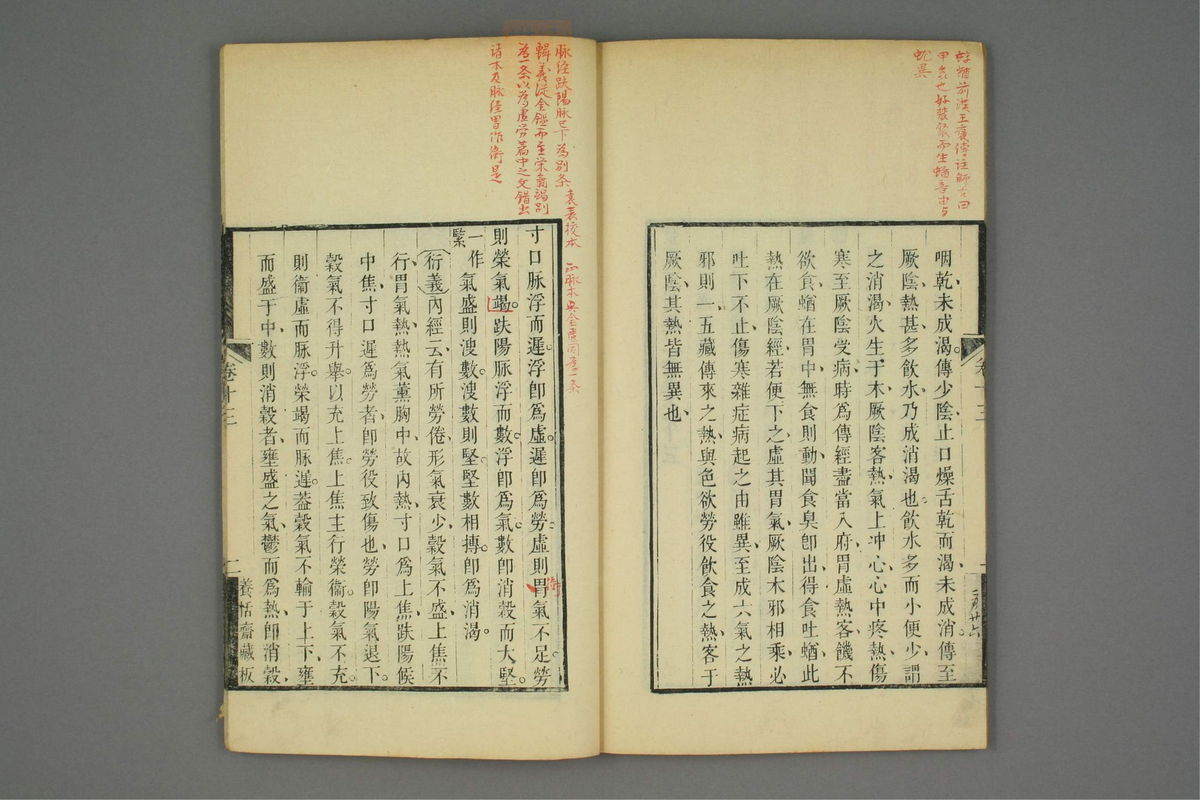 蛕蟯前漢王廣傳注師古曰
甲虫也好
咽乾未成渴傳少陰止口燥舌乾而渴未成消傳至
厥陰熱甚多飲水乃成消渴也飲水多而小便少謂
之消渴火生于木厥陰客熱氣上冲心心中疼熱傷
寒至厥陰受病時為傳經盡當入府胃虛熱客饑不
欲食蛕在胃中無食則動聞食臭卽出得食吐蛕此
熱在厥陰經若便下之虛其胃氣厥陰木邪相乘必
吐下不止傷寒雜症病起之由雖異至成六氣之熱
邪則一五藏傳來之熱與色欲勞役飲食之熱客于
厥陰其熱皆無異也
卷十三
脉經趺陽脉已下為別条
輯義從金鑑而至榮氣竭別
為一条以為虛勞篇中之文錯出
諸本及脉經胃作衛是
寸口脉浮而遲浮卽爲虛遲卽爲勞虛則胃氣不足勞
則榮氣竭趺陽脉浮而數浮卽爲氣數卽消穀而大堅
一作緊
氣盛則溲數溲數則堅堅數相搏卽爲消渴
衍義內經云有所勞倦形氣衰少穀氣不盛上焦不
行胃氣熱熱氣薰胸中故內熱寸口爲上焦趺陽候
中焦寸口遲爲勞者卽勞役致傷也勞卽陽氣退下
穀氣不得升舉以充上焦上焦主行榮衞穀氣不充
則衞虛而脉浮榮竭而脉遲葢穀氣不輸于上下壅
而盛于中數則消穀者壅盛之氣鬱而爲熱卽消穀
卷十三
二
養恬齋藏板